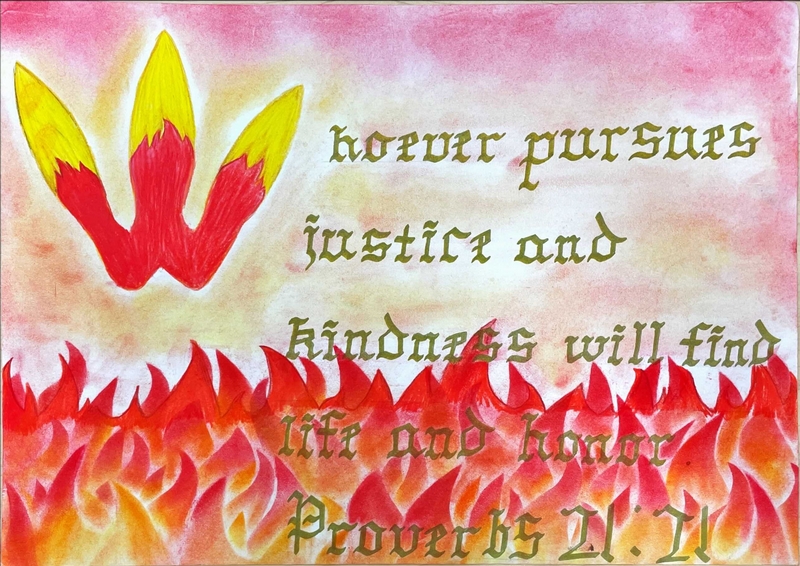 Whoever pursues
justice and
kindness will find
life and honor
Proverbs 21:21